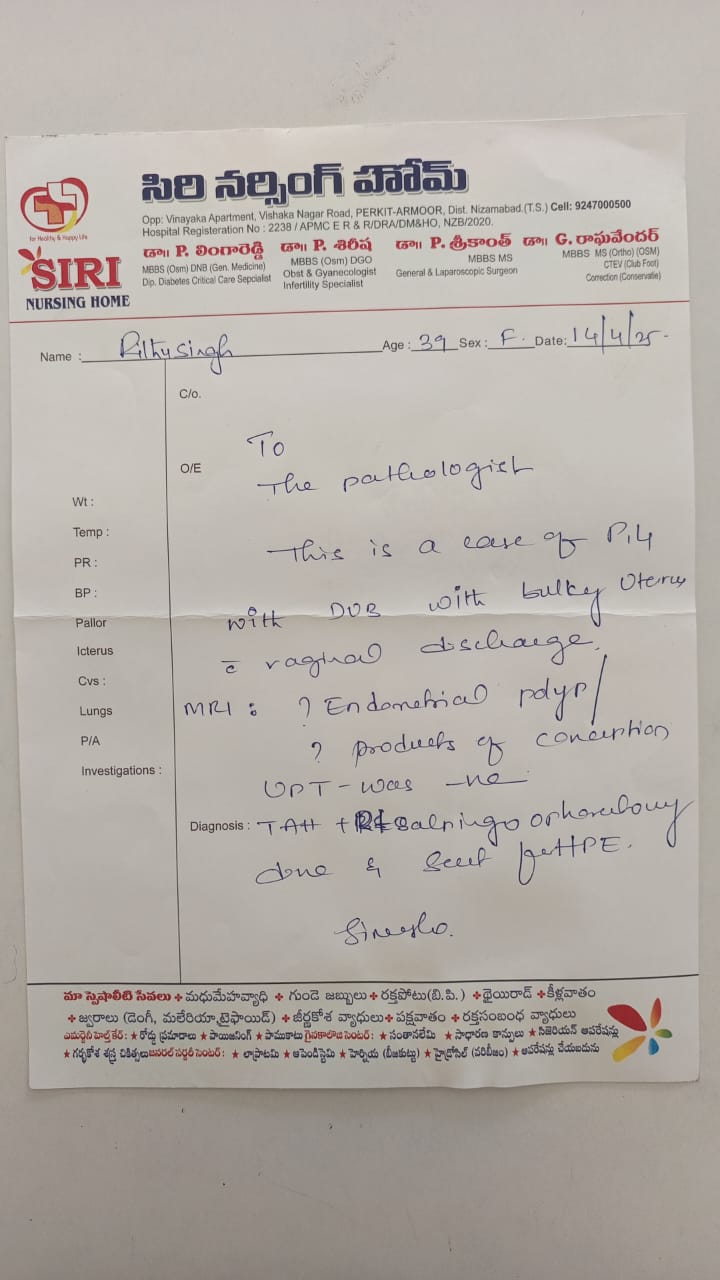 సిరి నర్సింగ్ హోమ్
for Healthy & Happy Life
Opp: Vinayaka Apartment, Vishaka Nagar Road, PERKIT-ARMOOR, Dist. Nizamabad.(T.S.) Cell: 9247000500
Hospital Registeration No : 2238 / APMC E R & R/DRA/DM&HO, NZB/2020.
SIRI
NURSING HOME
డా|| P. లింగారెడ్డి
MBBS (Osm) DNB (Gen. Medicine)
Dip. Diabetes Critical Care Sepcialist
డా|| P. శిరీష
MBBS (Osm) DGO
Obst & Gyanecologist
Infertility Specialist
డా|| P. శ్రీకాంత్
MBBS MS
General & Laparoscopic Surgeon
డా|| G. రాఘవేందర్
MBBS MS (Ortho) (OSM)
CTEV (Club Foot)
Correction (Conservatie)
Name : Singh Age : 39 Sex : F. Date: 14/4/25
C/o.
To
O/E
The pathologist
Wt :
Temp :
This is a case of P1L4
PR :
BP :
with DUB with bulky Uterus
Pallor
Icterus
c̄ vaginal discharge.
Cvs :
Lungs
MRI : ? Endometrial polyp/
P/A
? products of conception
Investigations :
UPT - was -ne
Diagnosis : TAH + salpingo ophorectomy
done & sent for HPE.
మా స్పెషాలిటి సేవలు + మధుమేహవ్యాధి + గుండె జబ్బులు + రక్తపోటు(బి.పి.) + థైయిరాడ్ + కీళ్లవాతం
+ జ్వరాలు (డెంగీ, మలేరియా,టైఫాయిడ్) + జీర్ణకోశ వ్యాధులు + పక్షవాతం + రక్తసంబంధ వ్యాధులు
ఎమర్జెన్సి హెల్త్ కేర్: ★ రోడ్డు ప్రమాదాలు ★ పాయిజనింగ్ ★ పాముకాటు గైనకాలొజి సెంటర్: ★ సంతానలేమి ★ సాధారణ కాన్పులు ★ సిజెరియన్ ఆపరేషన్లు
★ గర్భకోశ శస్త్ర చికిత్సలు జనరల్ సర్జరీ సెంటర్: ★ లాప్రాటమి ★ అపెండిస్టెమి ★ హెర్నియ (బీజకుట్టు) ★ హైడ్రోసిల్ (వరిబీజం) ★ ఆపరేషన్లు చేయబడును